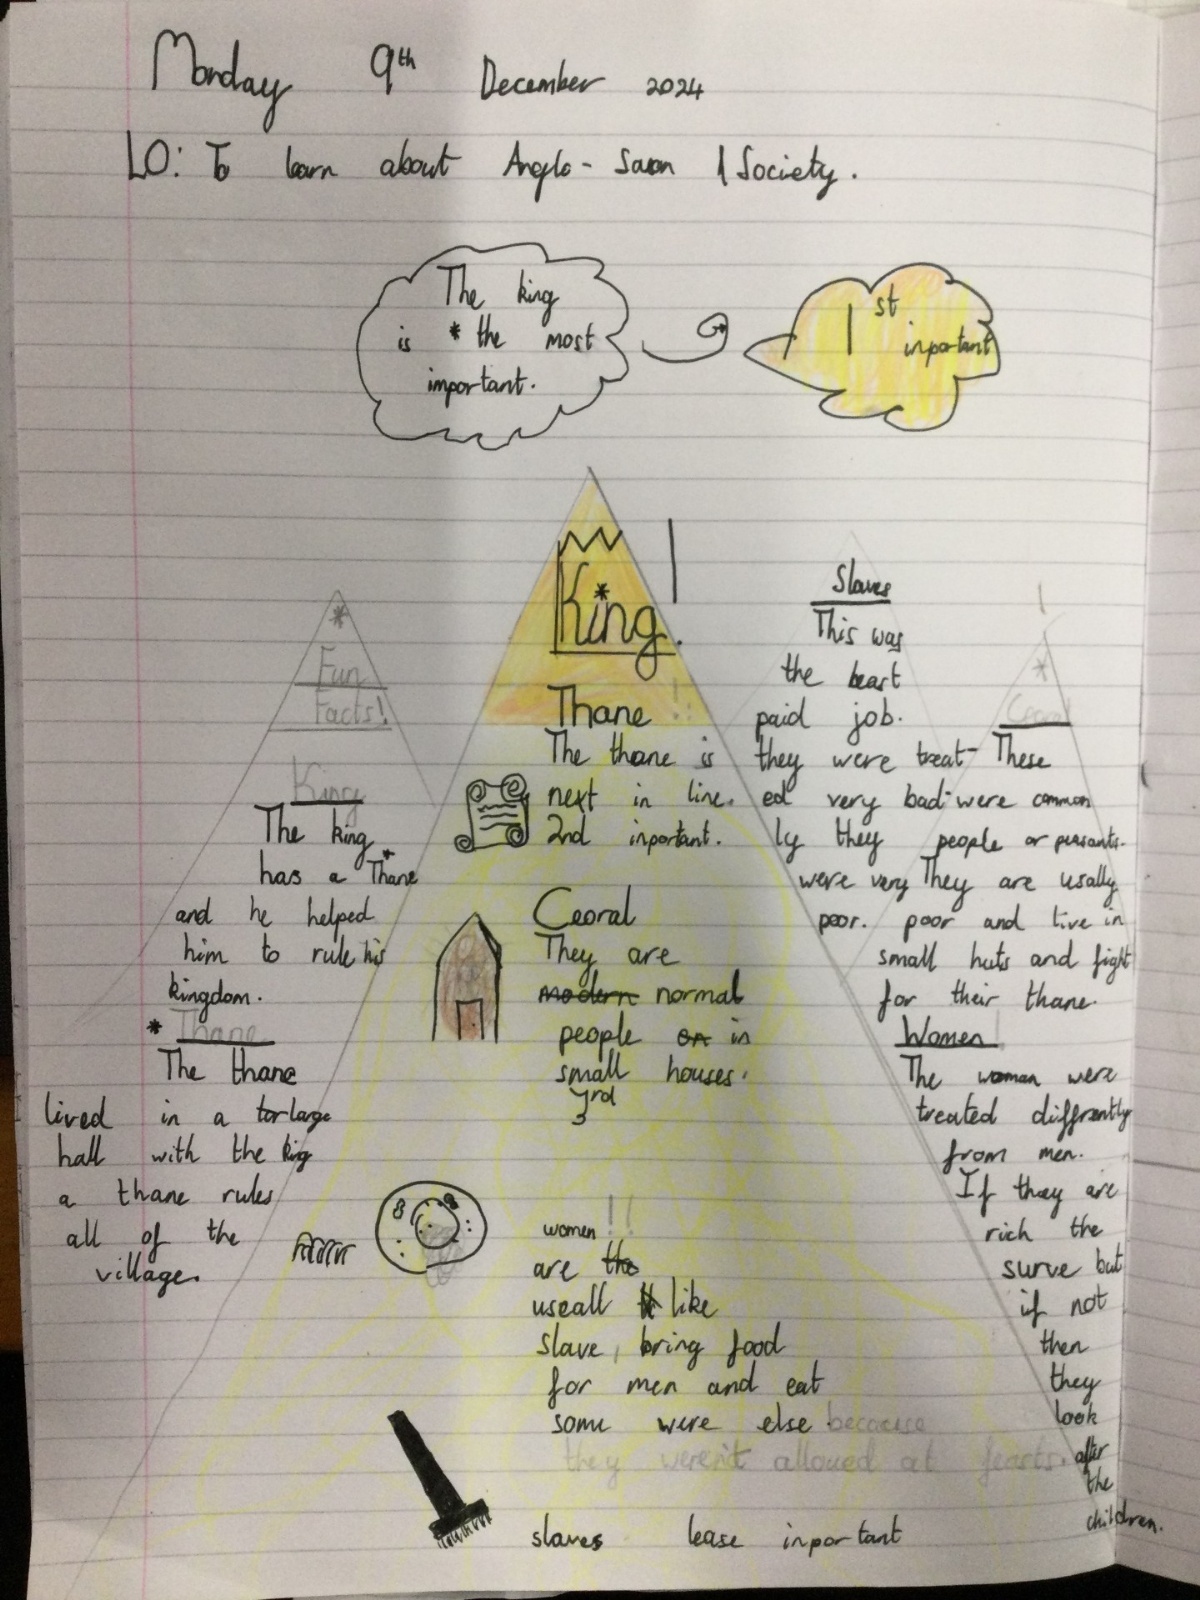 Monday 9th December 2024
LO: To learn about Anglo-Saxon Society.
The king
is * the most
important.
1st
inportant
King.
Thane !!
The thane is
next in line.
2nd inportant.
Ceoral
They are
modern normal
people on in
small houses.
3rd
women !!
are the
useall like
slave, bring food
for men and eat
some were else because
they weren't allowed at feasts.
slaves lease inportant
*
Fun
Facts!
King
The king
has a Thane
and he helped
him to rule his
kingdom.
* Thane
The thane
lived in a large
hall with the king
a thane rules
all of the
village.
Slaves
This was
the least
paid job.
they were treat-
ed very bad-
ly they
were very
poor.
*
Ceoral
These
were common
people or peasants.
They are usally
poor and live in
small huts and fight
for their thane.
Women!
The woman were
treated diffrently
from men.
If they are
rich the
surve but
if not
then
they
look
after
the
children.